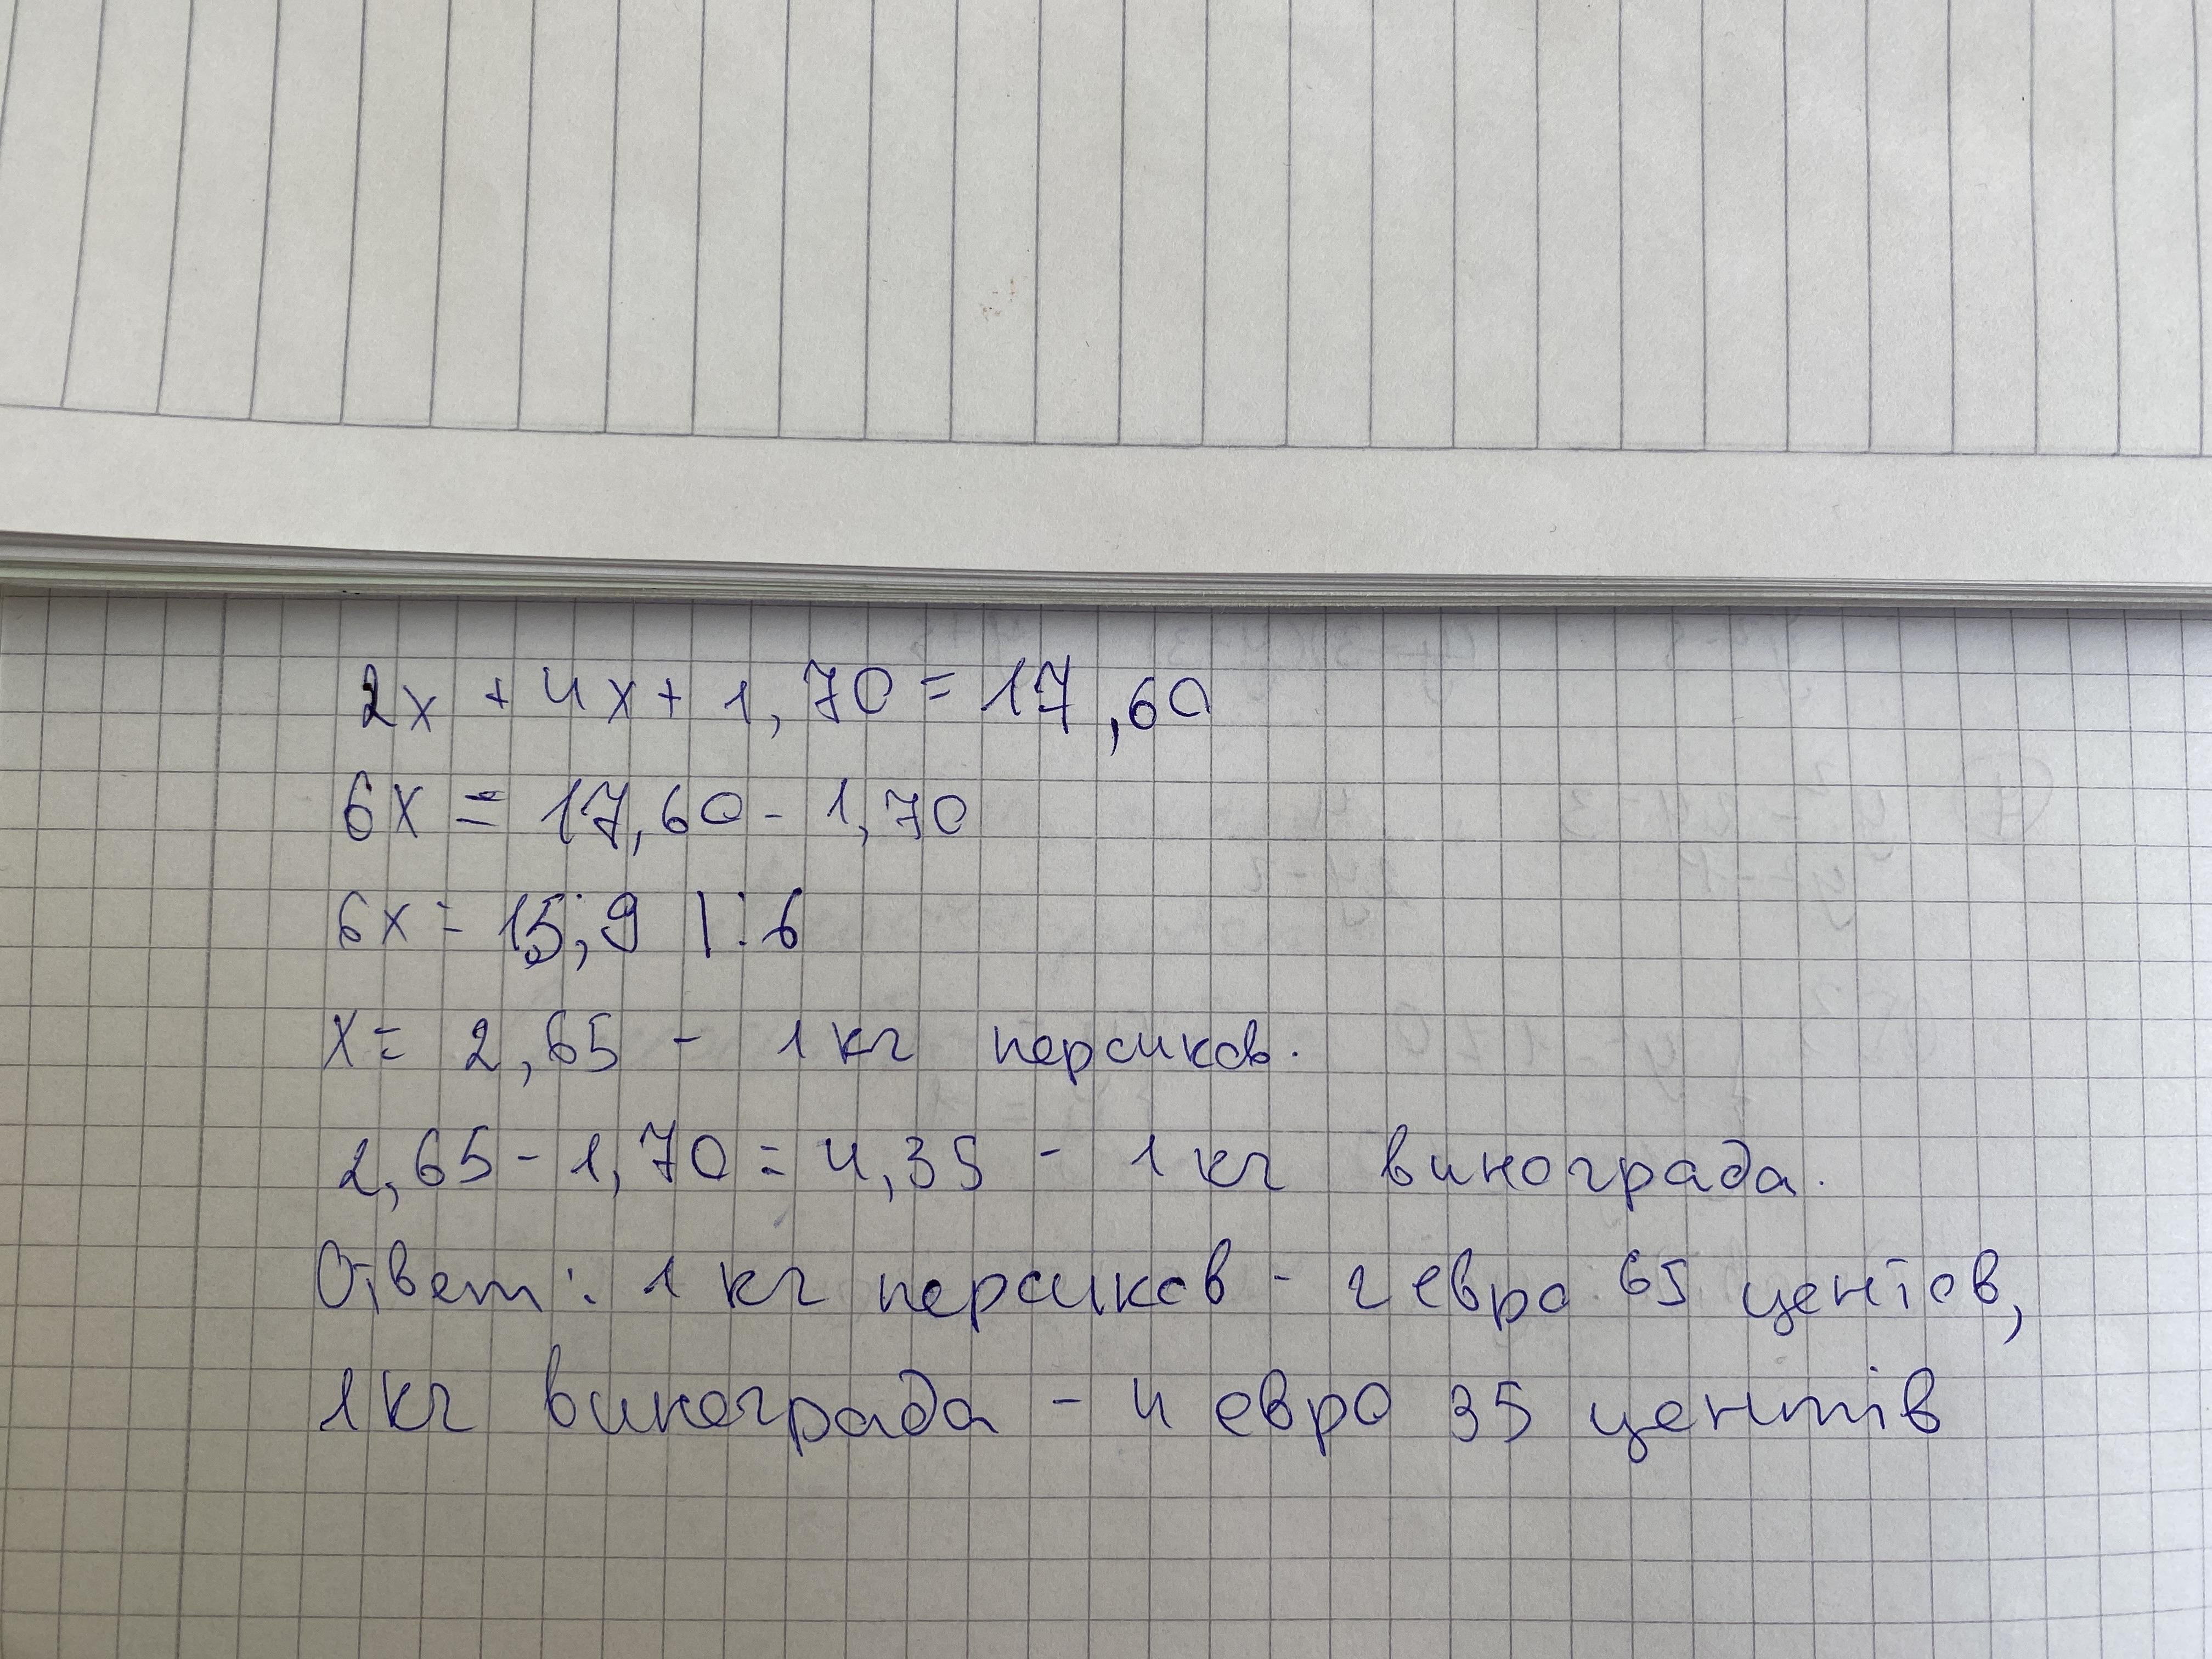 2x + 4x + 1,70 = 17,60
6x = 17,60 - 1,70
6x = 15,9 |:6
x = 2,65 - 1 кг персиков.
2,65 - 1,70 = 4,35 - 1 кг винограда.
Ответ: 1 кг персиков - 2 евро 65 центов,
1 кг винограда - 4 евро 35 центів